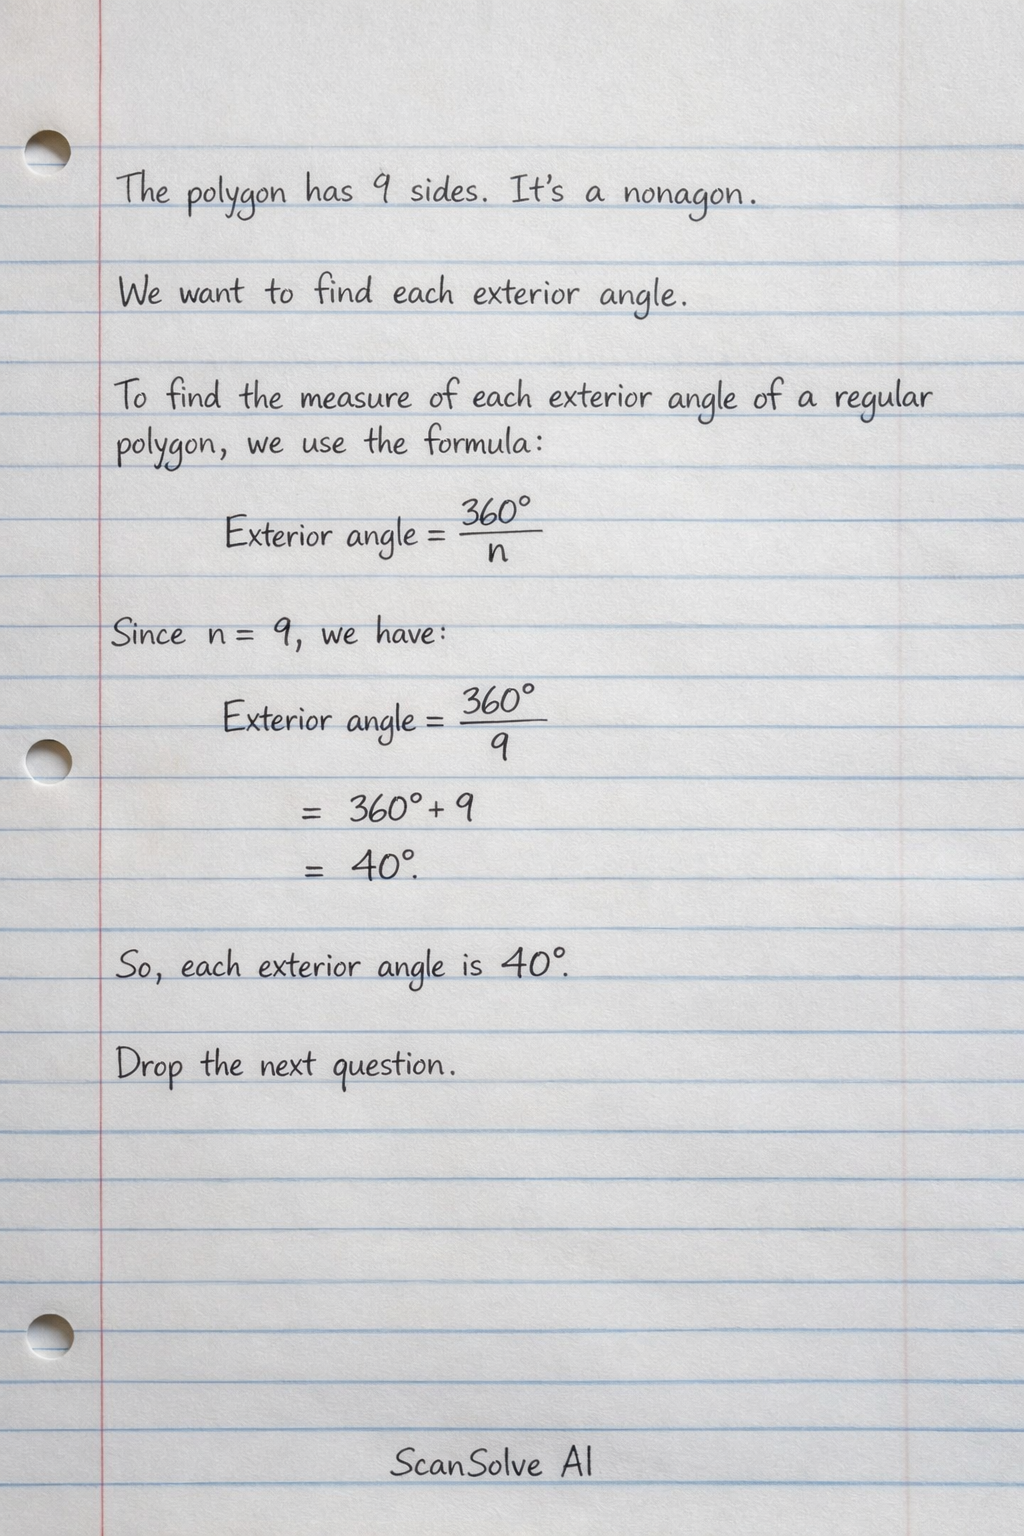 The polygon has 9 sides. It's a nonagon.
We want to find each exterior angle.
To find the measure of each exterior angle of a regular
polygon, we use the formula:
Exterior angle = 360°/n
Since n = 9, we have:
Exterior angle = 360°/9
= 360° + 9
= 40°.
So, each exterior angle is 40°.
Drop the next question.
ScanSolve AI